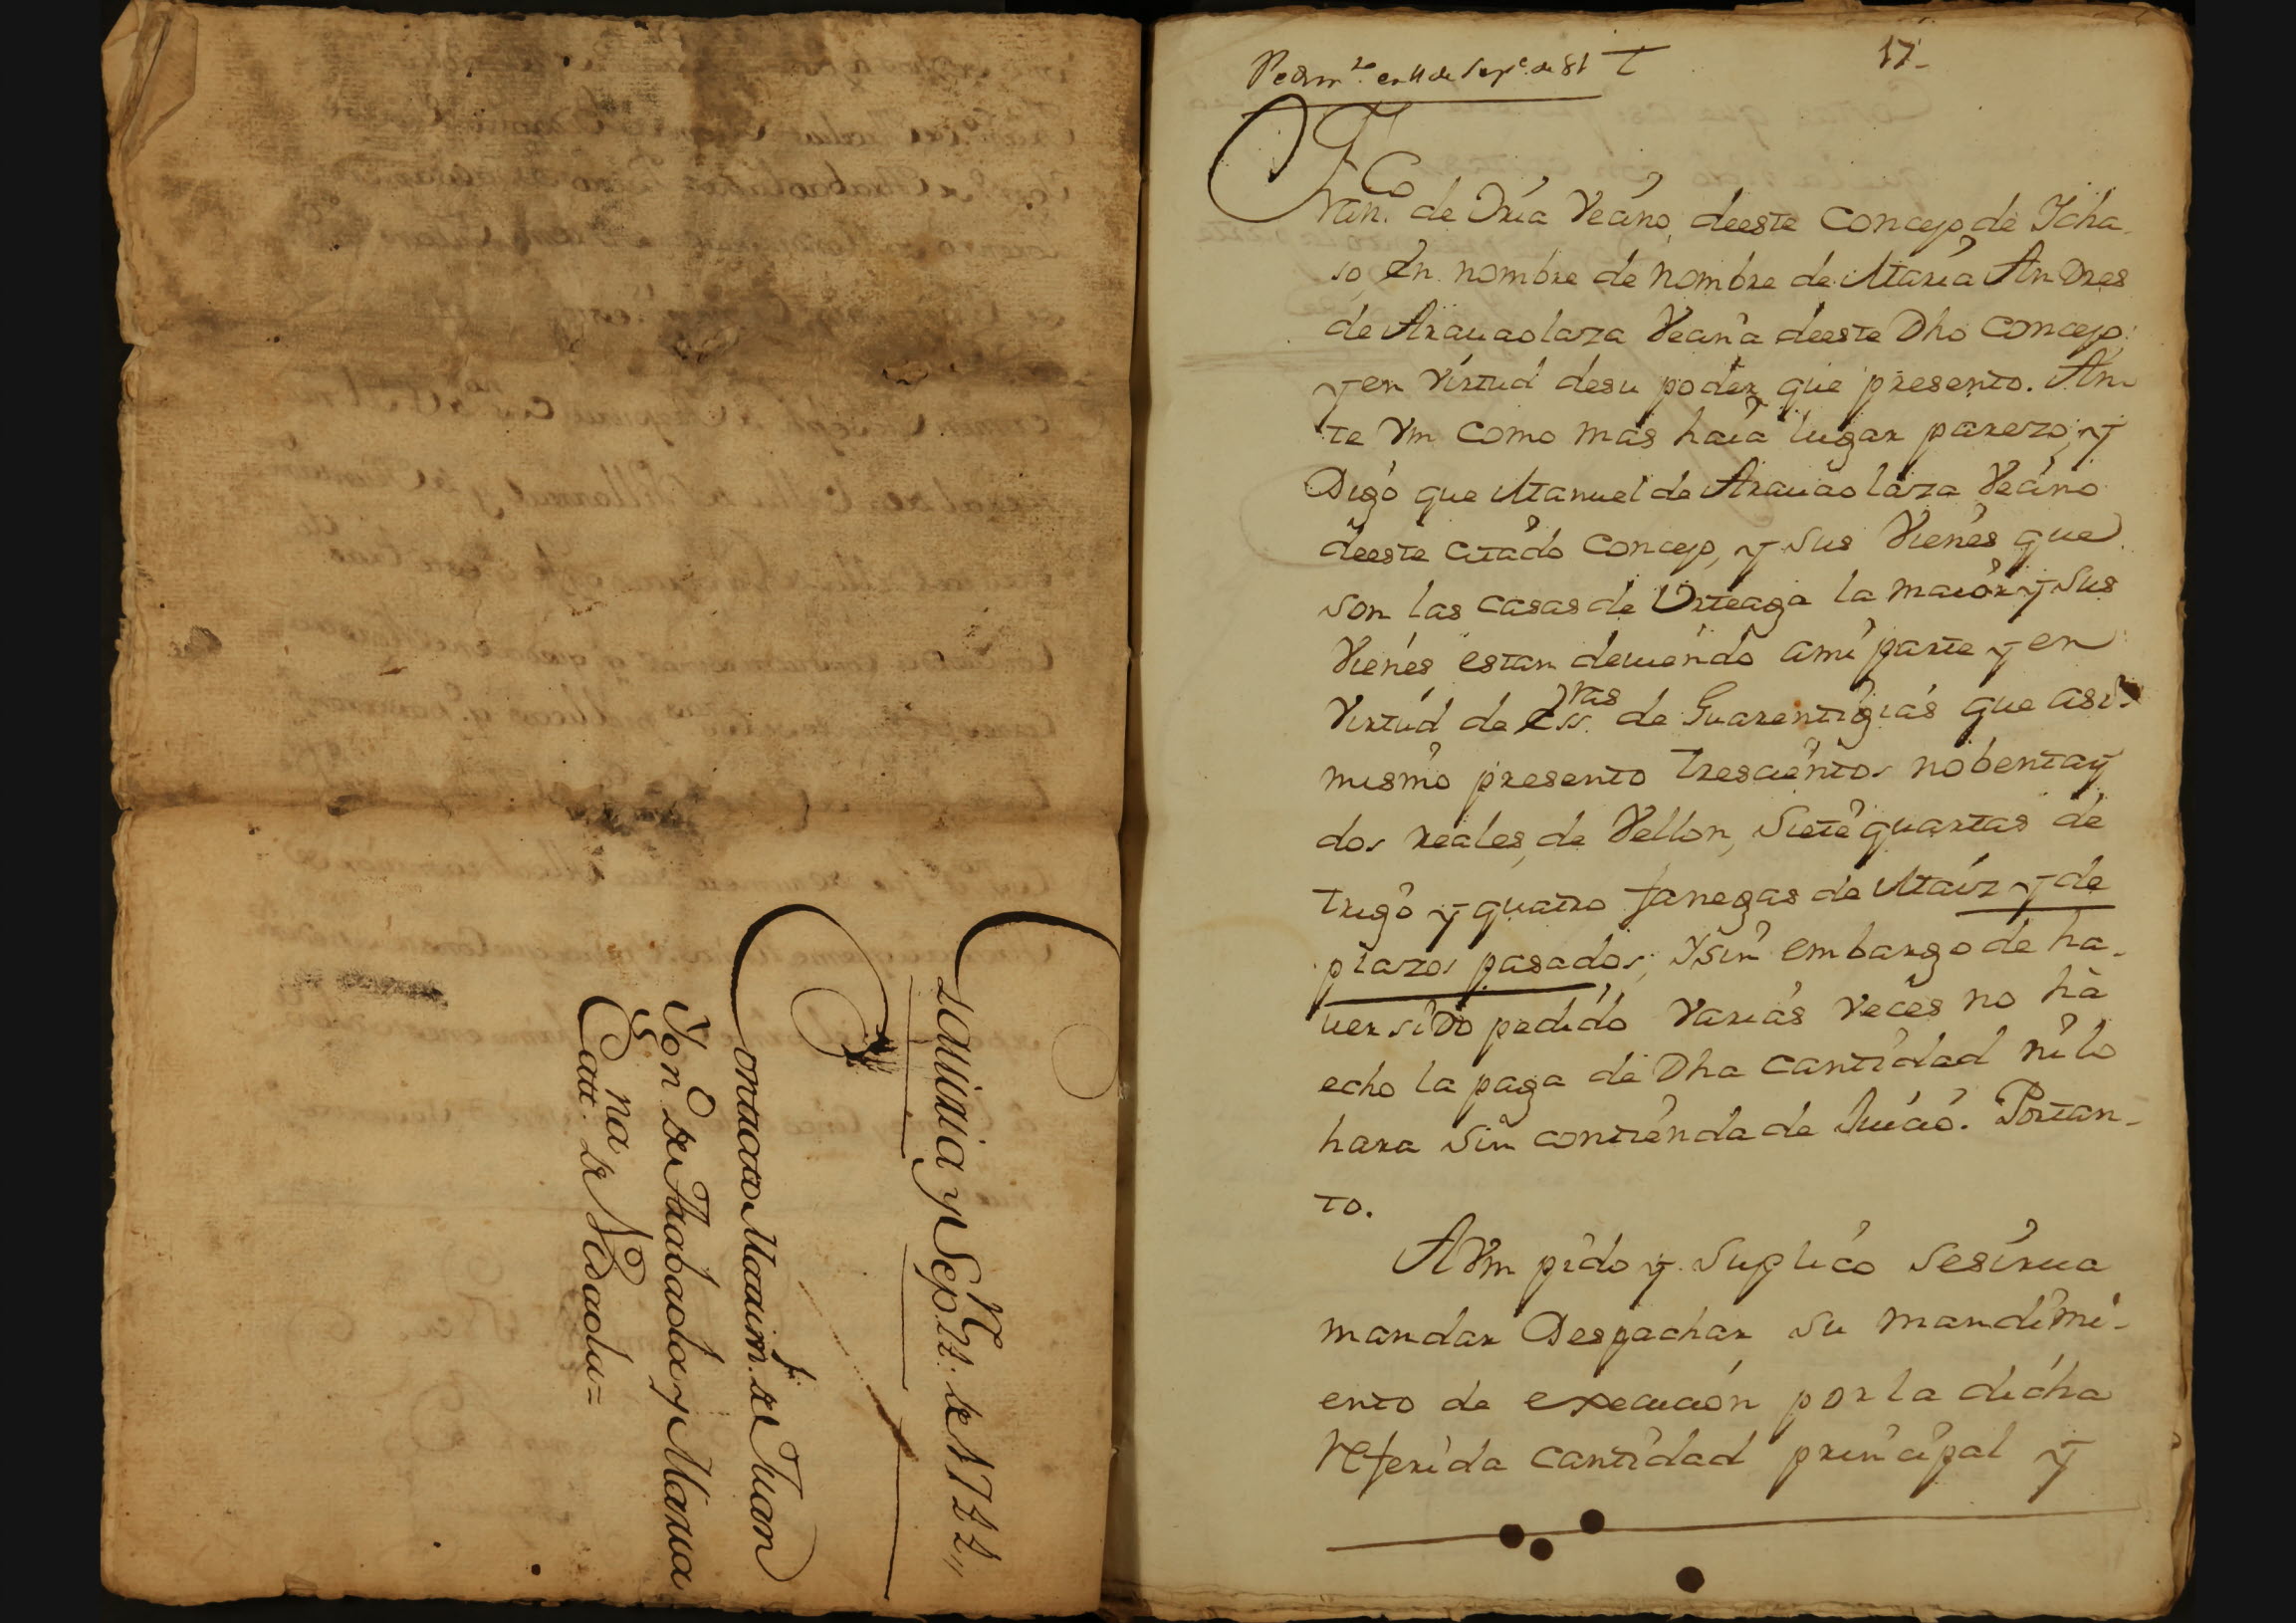 Lauiria y Sep.re 12: de 1722,,
Conttrato Matrim.l de Juan
Ygn.o de Arabaolaza y Maria
Catt.na de Vidaolu=
17-
en 11 de Sep.e de 81
Fran.co de Oria Vecino, deeste Concejo de Icha-
so, En nombre de nombre de Maria Andres
de Arauaolaza Vecina deeste Dho Concejo
y en virtud desu poder que presento. An-
te Vm como mas haia lugar parezo, y
Digo que Manuel de Arauaolaza Vecino
deeste citado Concejo, y sus Vienes que
son las casas de Urteaga la maior y sus
Vienes estan deuiendo ami parte y en
virtud de Ess.ras de Guarentigias que asi-
mismo presento trescientos nobenta y
dos reales, de Vellon, Siete quartas de
trigo y quatro fanegas de Maiz y de
plazos pasados; y sin embargo de ha-
uer sido pedido varias veces no hà
echo la paga de Dha cantidad ni lo
hara sin contienda de Juicio. Portan-
to.
AVm pido y suplico sesirua
mandar Despachar su mandimi-
ento de execucion por la dicha
referida cantidad principal y